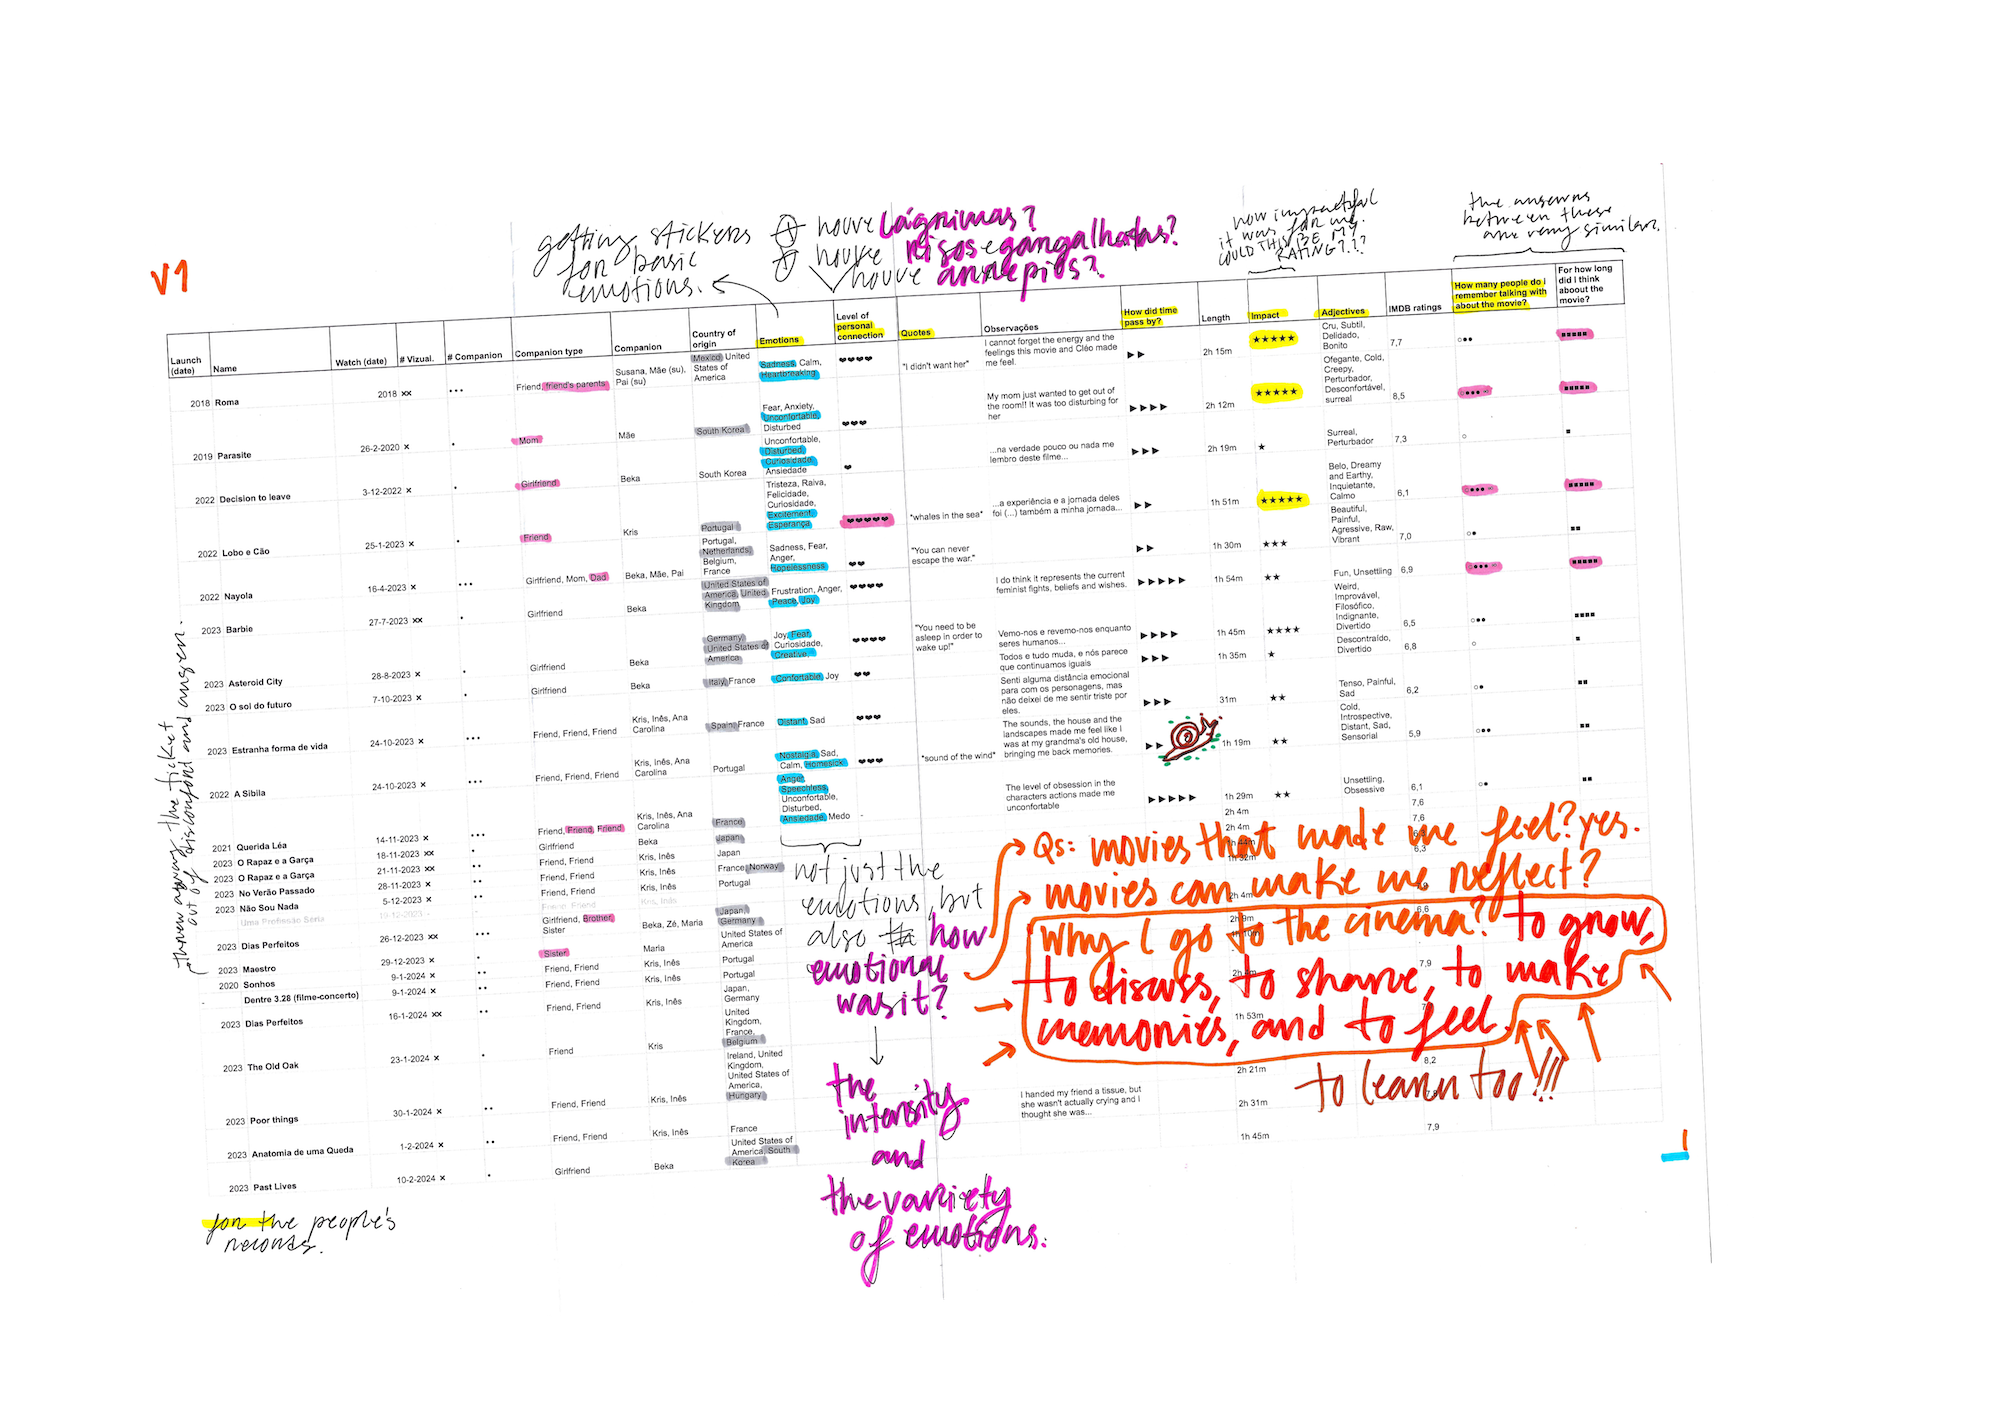 V1
getting stickers
for basic
emotions.
houve lágrimas?
houve risos e gargalhadas?
houve arrepios?
how impactful
it was for me.
COULD THIS BE MY
RATING???
the answers
between these
are very similar.
Launch (date) Name Watch (date) # Vizual. # Companion Companion type Companion Country of origin Emotions Level of personal connection Quotes Observações How did time pass by? Length Impact Adjectives IMDB ratings How many people do I remember talking with about the movie? For how long did I think aboout the movie?
2018 Roma 2018 xx ••• Friend, friend's parents Susana, Mãe (su), Pai (su) Mexico, United States of America Sadness, Calm, Heartbreaking ❤❤❤❤ "I didn't want her" I cannot forget the energy and the feelings this movie and Cléo made me feel. ▶▶ 2h 15m ★★★★★ Cru, Subtil, Delidado, Bonito 7,7 ○●● ■■■■■
2019 Parasite 26-2-2020 x • Mom Mãe South Korea Fear, Anxiety, Unconfortable, Disturbed ❤❤❤ My mom just wanted to get out of the room!! It was too disturbing for her ▶▶▶▶ 2h 12m ★★★★★ Ofegante, Cold, Creepy, Perturbador, Desconfortável, surreal 8,5 ■■■■■
2022 Decision to leave 3-12-2022 x • Girlfriend Beka South Korea Unconfortable, Disturbed, Curiosidade, Ansiedade ❤ ...na verdade pouco ou nada me lembro deste filme... ▶▶▶ 2h 19m ★ Surreal, Perturbador 7,3 ○ ■
2022 Lobo e Cão 25-1-2023 x • Friend Kris Portugal Tristeza, Raiva, Felicidade, Curiosidade, Excitement, Esperança ❤❤❤❤❤ "whales in the sea" ...a experiência e a jornada deles foi (...) também a minha jornada... ▶▶ 1h 51m ★★★★★ Belo, Dreamy and Earthy, Inquietante, Calmo 6,1 ■■■■■
2022 Nayola 16-4-2023 x ••• Girlfriend, Mom, Dad Beka, Mãe, Pai Portugal, Netherlands, Belgium, France Sadness, Fear, Anger, Hopelessness ❤❤ "You can never escape the war." ▶▶ 1h 30m ★★★ Beautiful, Painful, Agressive, Raw, Vibrant 7,0 ○● ■■
2023 Barbie 27-7-2023 xx • Girlfriend Beka United States of America, United Kingdom Frustration, Anger, Peace, Joy ❤❤❤❤ I do think it represents the current feminist fights, beliefs and wishes. ▶▶▶▶▶ 1h 54m ★★ Fun, Unsettling 6,9 ■■■■■
2023 Asteroid City 28-8-2023 x • Girlfriend Beka Germany, United States of America Joy, Fear, Curiosidade, Creative, ❤❤❤❤ "You need to be asleep in order to wake up!" Vemo-nos e revemo-nos enquanto seres humanos... ▶▶▶▶ 1h 45m ★★★★ Weird, Improvável, Filosófico, Indignante, Divertido 6,5 ○●● ■■■■
2023 O sol do futuro 7-10-2023 x • Girlfriend Beka Italy, France Confortable, Joy ❤❤ Todos e tudo muda, e nós parece que continuamos iguais ▶▶▶ 1h 35m ★ Descontraído, Divertido 6,8 ○ ■
2023 Estranha forma de vida 24-10-2023 x ••• Friend, Friend, Friend Kris, Inês, Ana Carolina Spain, France Distant, Sad ❤❤❤ Senti alguma distância emocional para com os personagens, mas não deixei de me sentir triste por eles. ▶▶▶ 31m ★★ Tenso, Painful, Sad 6,2 ○● ■■
2022 A Sibila 24-10-2023 x ••• Friend, Friend, Friend Kris, Inês, Ana Carolina Portugal Nostalgia, Sad, Calm, Homesick ❤❤❤ "sound of the wind" The sounds, the house and the landscapes made me feel like I was at my grandma's old house, bringing me back memories. ▶▶ 1h 19m ★★ Cold, Introspective, Distant, Sad, Sensorial 5,9 ○●● ■■
2021 Querida Léa 14-11-2023 x ••• Friend, Friend, Friend Kris, Inês, Ana Carolina France Anger, Speechless, Unconfortable, Disturbed, Ansiedade, Medo - The level of obsession in the characters actions made me unconfortable ▶▶▶▶▶ 1h 29m ★★ Unsettling, Obsessive 6,1 ○● ■■
2023 O Rapaz e a Garça 18-11-2023 xx •• Girlfriend Beka Japan 2h 4m 7,6
2023 O Rapaz e a Garça 21-11-2023 xx •• Friend, Friend Kris, Inês Japan 2h 4m 7,6
2023 No Verão Passado 28-11-2023 x •• Friend, Friend Kris, Inês France, Norway
2023 Não Sou Nada 5-12-2023 x •• Friend, Friend Kris, Inês Portugal 1h 32m 6,3
Uma Profissão Séria 10-12-2023 - Friend, Friend Kris, Inês
2023 Dias Perfeitos 26-12-2023 xx ••• Girlfriend, Brother, Sister Beka, Zé, Maria Japan, Germany 2h 4m
2023 Maestro 29-12-2023 x • Sister Maria United States of America 2h 9m 6,6
2020 Sonhos 9-1-2024 x •• Friend, Friend Kris, Inês Portugal
- Dentre 3.28 (filme-concerto) 9-1-2024 x •• Friend, Friend Kris, Inês Portugal
2023 Dias Perfeitos 16-1-2024 xx •• Friend, Friend Kris, Inês Japan, Germany 7,9
2023 The Old Oak 23-1-2024 x • Friend Kris United Kingdom, France, Belgium 1h 53m
2023 Poor things 30-1-2024 x •• Friend, Friend Kris, Inês Ireland, United Kingdom, United States of America, Hungary 2h 21m 8,2
2023 Anatomia de uma Queda 1-2-2024 x •• Friend, Friend Kris, Inês France I handed my friend a tissue, but she wasn't actually crying and I thought she was... 2h 31m
2023 Past Lives 10-2-2024 x • Girlfriend Beka United States of America, South Korea 1h 45m 7,9
threw away the ticket
out of disconford and anger.
not just the
emotions, but
also how
emotional
was it?
the
intensity
and
the variety
of emotions.
Qs: movies that made me feel? yes.
movies can make me reflect?
Why I go to the cinema? to grow,
to discuss, to share, to make
memories, and to feel.
to learn too!!!
for the people's
records.